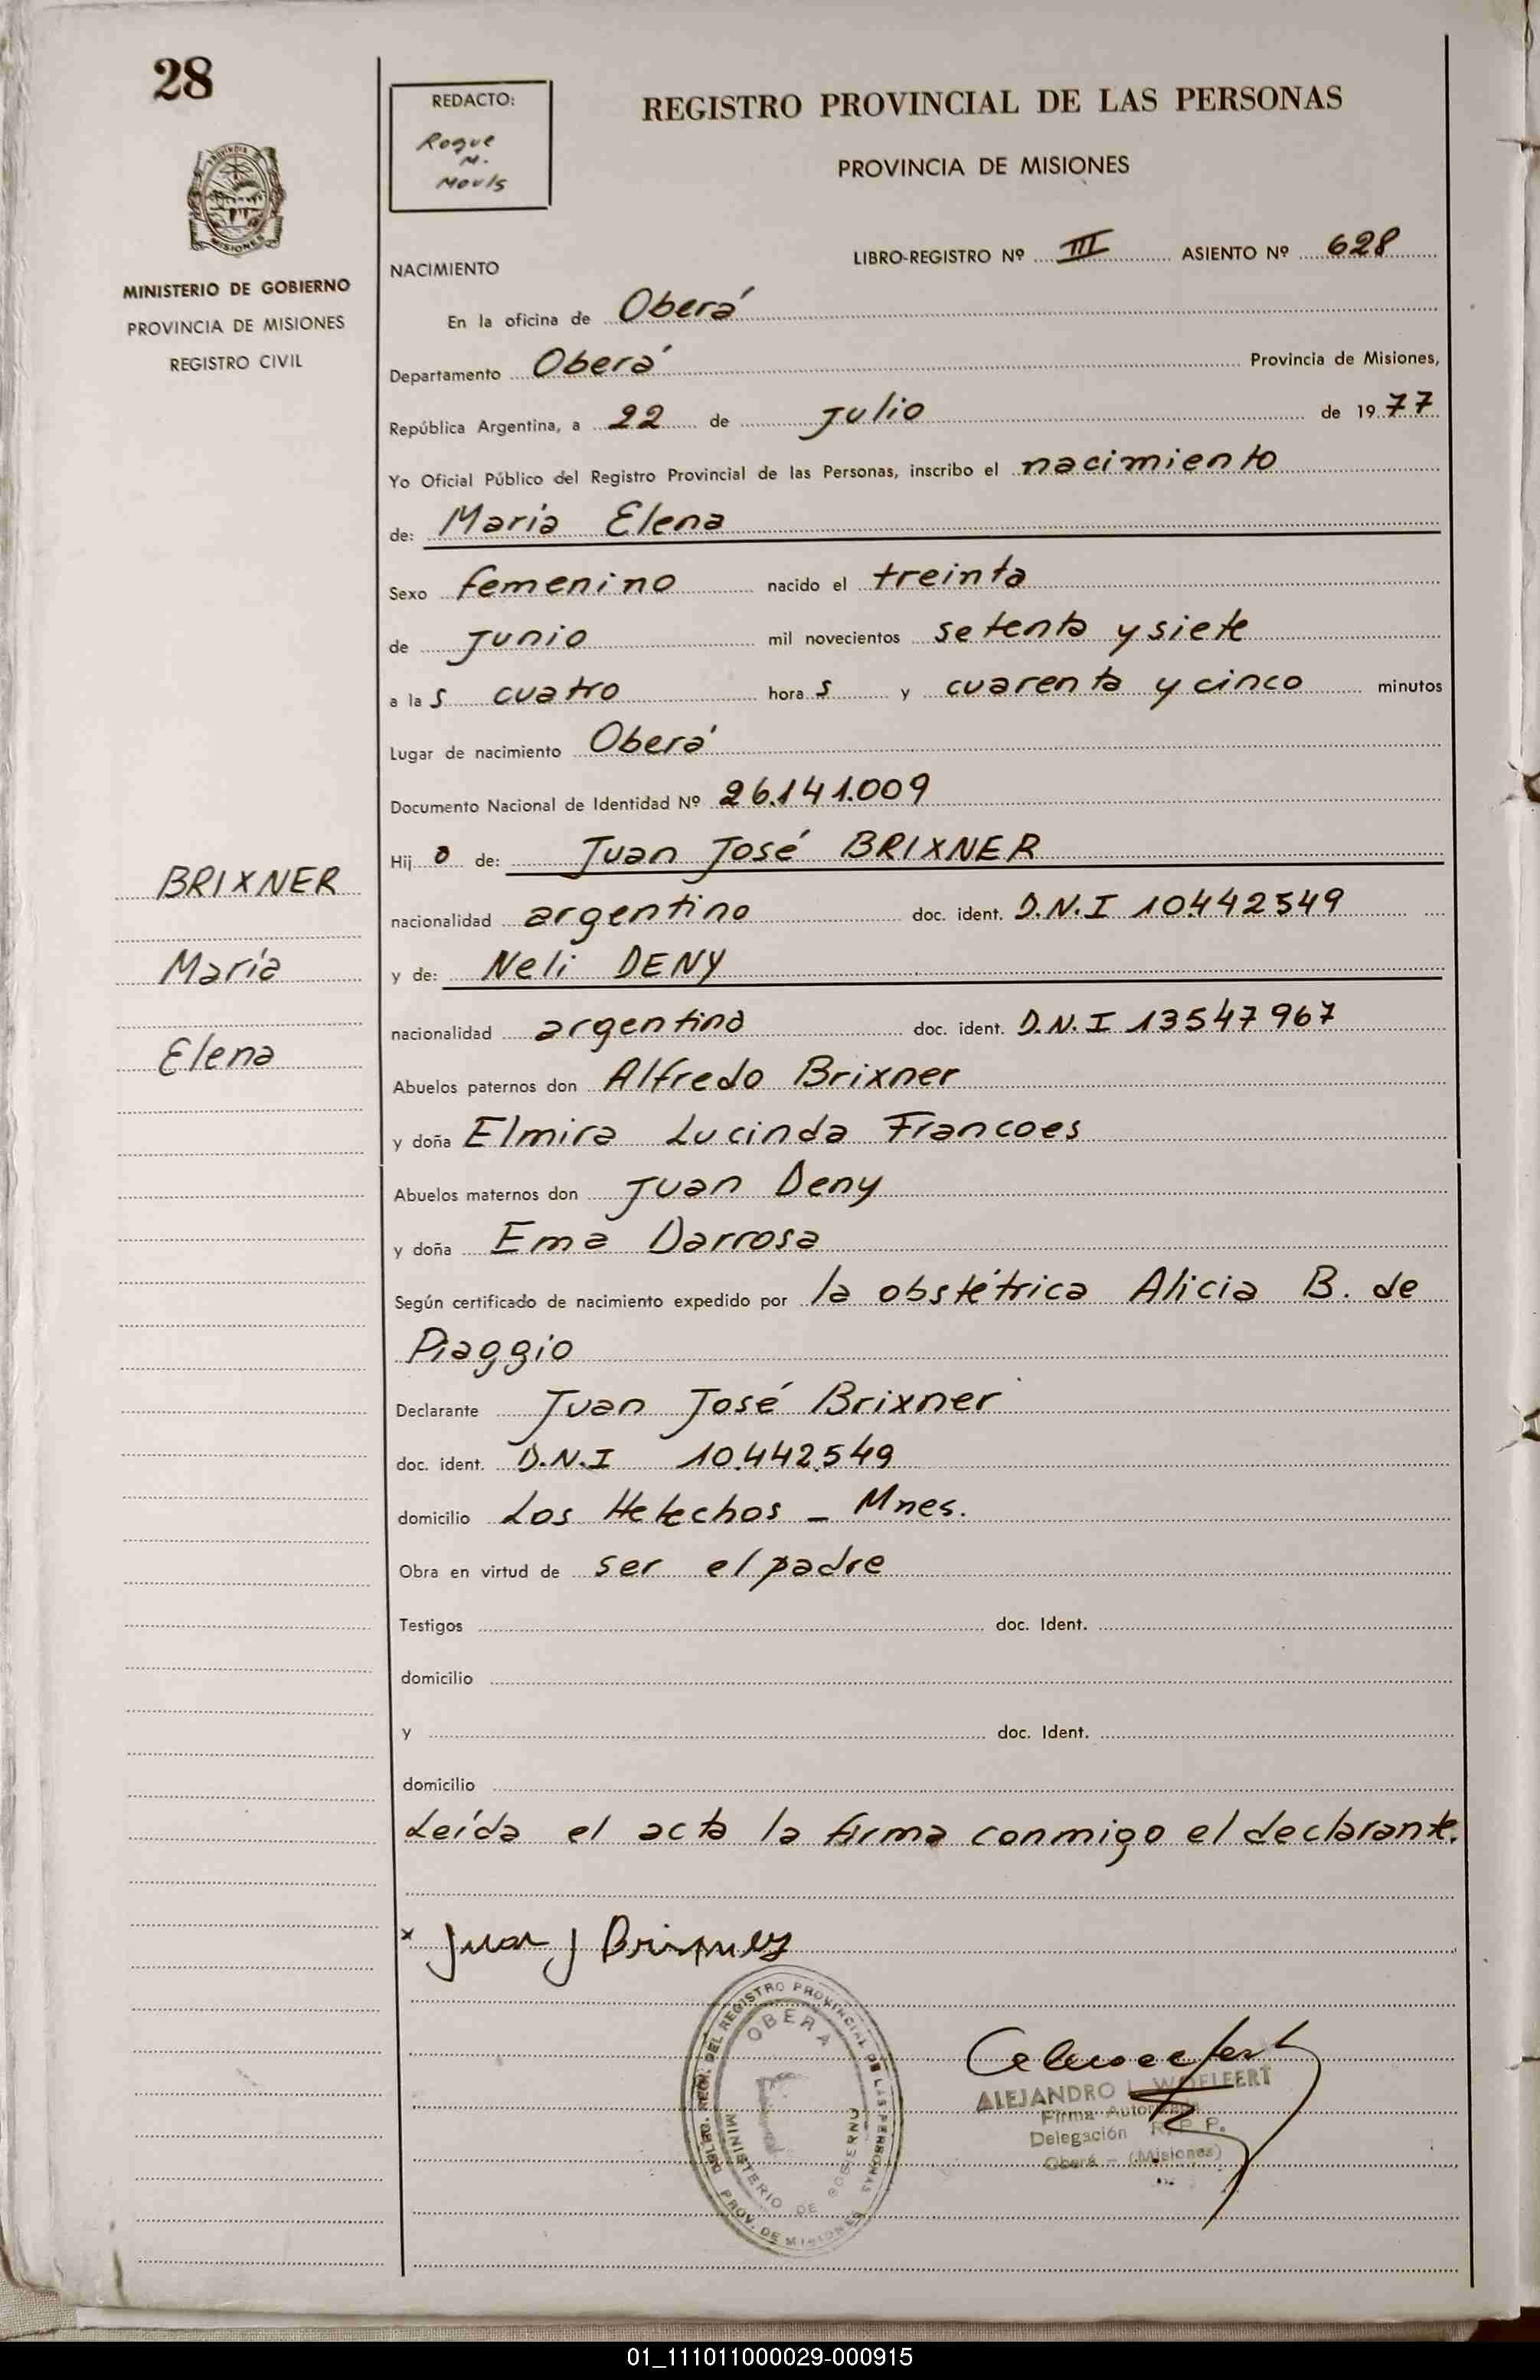 28
REDACTO:
Roque
M.
REGISTRO PROVINCIAL DE LAS PERSONAS
PROVINCIA DE MISIONES
PROVINCIA
MISIONES
MINISTERIO DE GOBIERNO
PROVINCIA DE MISIONES
REGISTRO CIVIL
LIBRO-REGISTRO Nº III ASIENTO Nº 628
NACIMIENTO
En la oficina de Oberá
Departamento Oberá Provincia de Misiones,
República Argentina, a 22 de Julio de 1977
Yo Oficial Público del Registro Provincial de las Personas, inscribo el nacimiento
de: María Elena
Sexo femenino nacido el treinta
de Junio mil novecientos setenta y siete
a las cuatro horas y cuarenta y cinco minutos
Lugar de nacimiento Oberá
Documento Nacional de Identidad Nº 26.141.009
Hija de: Juan José BRIXNER
nacionalidad argentino doc. ident. D.N.I 10442549
y de: Neli DENY
nacionalidad argentina doc. ident. D.N.I 13547967
BRIXNER
María
Elena
Abuelos paternos don Alfredo Brixner
y doña Elmira Lucinda Francoes
Abuelos maternos don Juan Deny
y doña Ema Darrosa
Según certificado de nacimiento expedido por la obstétrica Alicia B. de
Piaggio
Declarante Juan José Brixner
doc. ident. D.N.I 10.442.549
domicilio Los Helechos - Mnes.
Obra en virtud de ser el padre
Testigos doc. Ident.
domicilio
y doc. Ident.
domicilio
Leída el acta la firma conmigo el declarante.
x Juan J
DEL REGISTRO PROVINCIAL DE LAS PERSONAS
OBERA
MINISTERIO DE GOBIERNO
PROV. DE MISIONES
ALEJANDRO L. WOELFERT
Firma Autorizada
Delegación R. P. P.
Oberá - (Misiones)
01_111011000029-000915